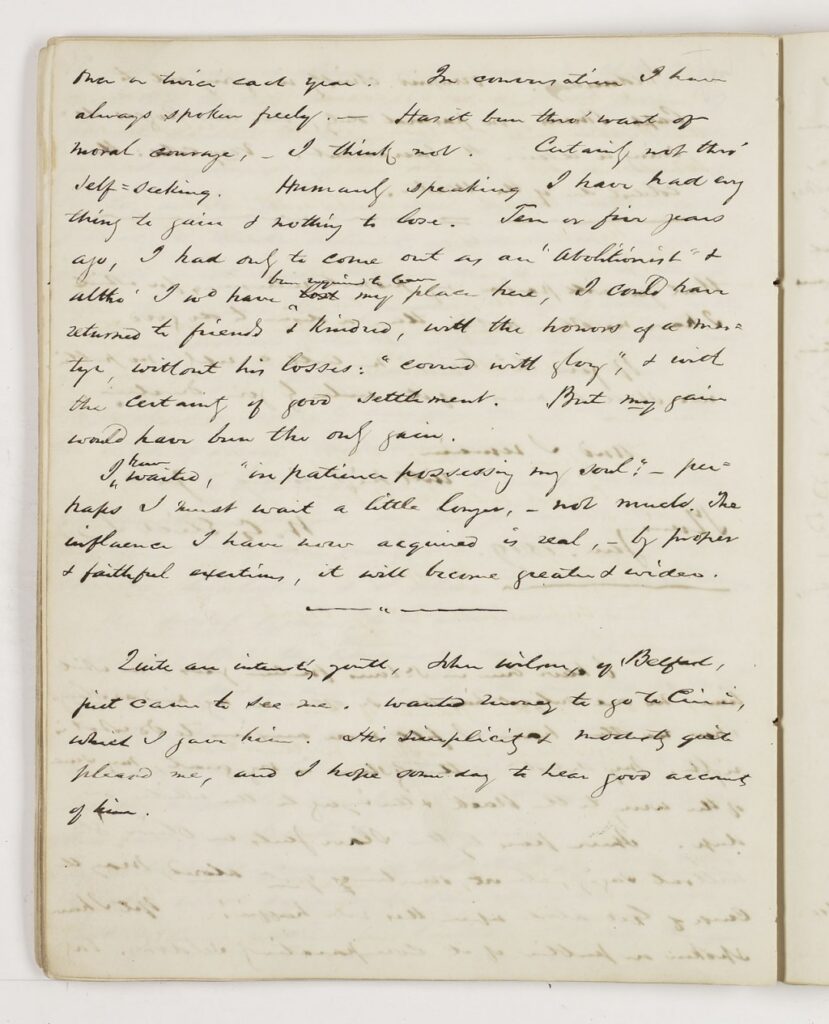 once or twice each year. In conversation I have
always spoken freely. — Has it been thro' want of
moral courage, – I think not. Certainly not thro'
self=seeking. Humanly speaking I have had every
thing to gain & nothing to lose. Ten or five years
ago, I had only to come out as an "Abolitionist" &
been required to leave
altho' I wd have lost my place here, I could have
returned to friends & kindred, with the honors of a mar=
tyr, without his losses: "covered with glory", & with
the certainty of good settlement. But my gain
would have been the only gain.
have
I waited, "in patience possessing my soul": – per=
haps I must wait a little longer, – not much. The
influence I have now acquired is real, – by proper
& faithful exertions, it will become greater & wider.
Quite an interestg youth, John Wilson, of Belfast,
just came to see me. Wanted money to go to Cini,
which I gave him. His simplicity & modesty quite
pleased me, and I hope some day to hear good accounts
of him.